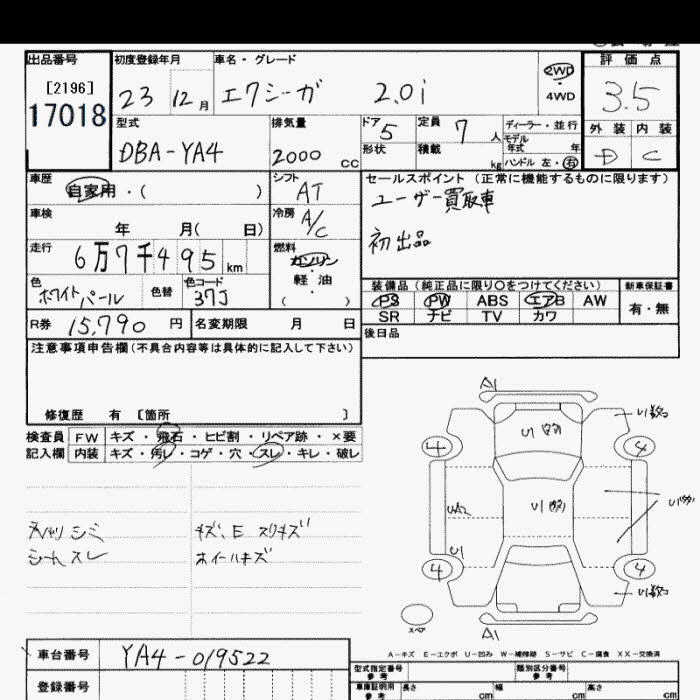 出品番号 初度登録年月 車名・グレード 評価点
[2196] 23 12月 エクシーガ 2.0i 2WD・4WD 3.5
17018
型式 排気量 ドア 5 定員 7人 ディーラー・並行 外装 内装
DBA-YA4 2000cc 形状 積載 kg モデル年式 年 D C
ハンドル 左・右
車歴 自家用・( ) シフト AT セールスポイント(正常に機能するものに限ります)
ユーザー買取車
車検 年 月( 日) 冷房 A/C
初出品
走行 6万7千495km 燃料 ガソリン・軽油・( )
色 ホワイトパール 色替 色コード 37J 装備品(純正品に限り○をつけてください) 新車保証書
PS PW ABS エアB AW 有・無
SR ナビ TV カワ
R券 15,790円 名変期限 月 日 後日品
注意事項申告欄(不具合内容等は具体的に記入して下さい)
修復歴 有 〔箇所 〕
検査員記入欄 FW キズ・飛石・ヒビ割・リペア跡・×要
内装 キズ・汚レ・コゲ・穴・スレ・キレ・破レ
A1
U1
4 4
UA2 U1
U1
4 4
シミ キズ、E スリキズ
シートスレ ホイールキズ
スペア
A1
A−キズ E−エクボ U−凹み W−補修跡 S−サビ C−腐食 XX−交換済
車台番号 YA4-019522 型式指定番号 参考 類別区分番号 参考
登録番号 車庫証明用 参考 長さ cm 幅 cm 高さ cm